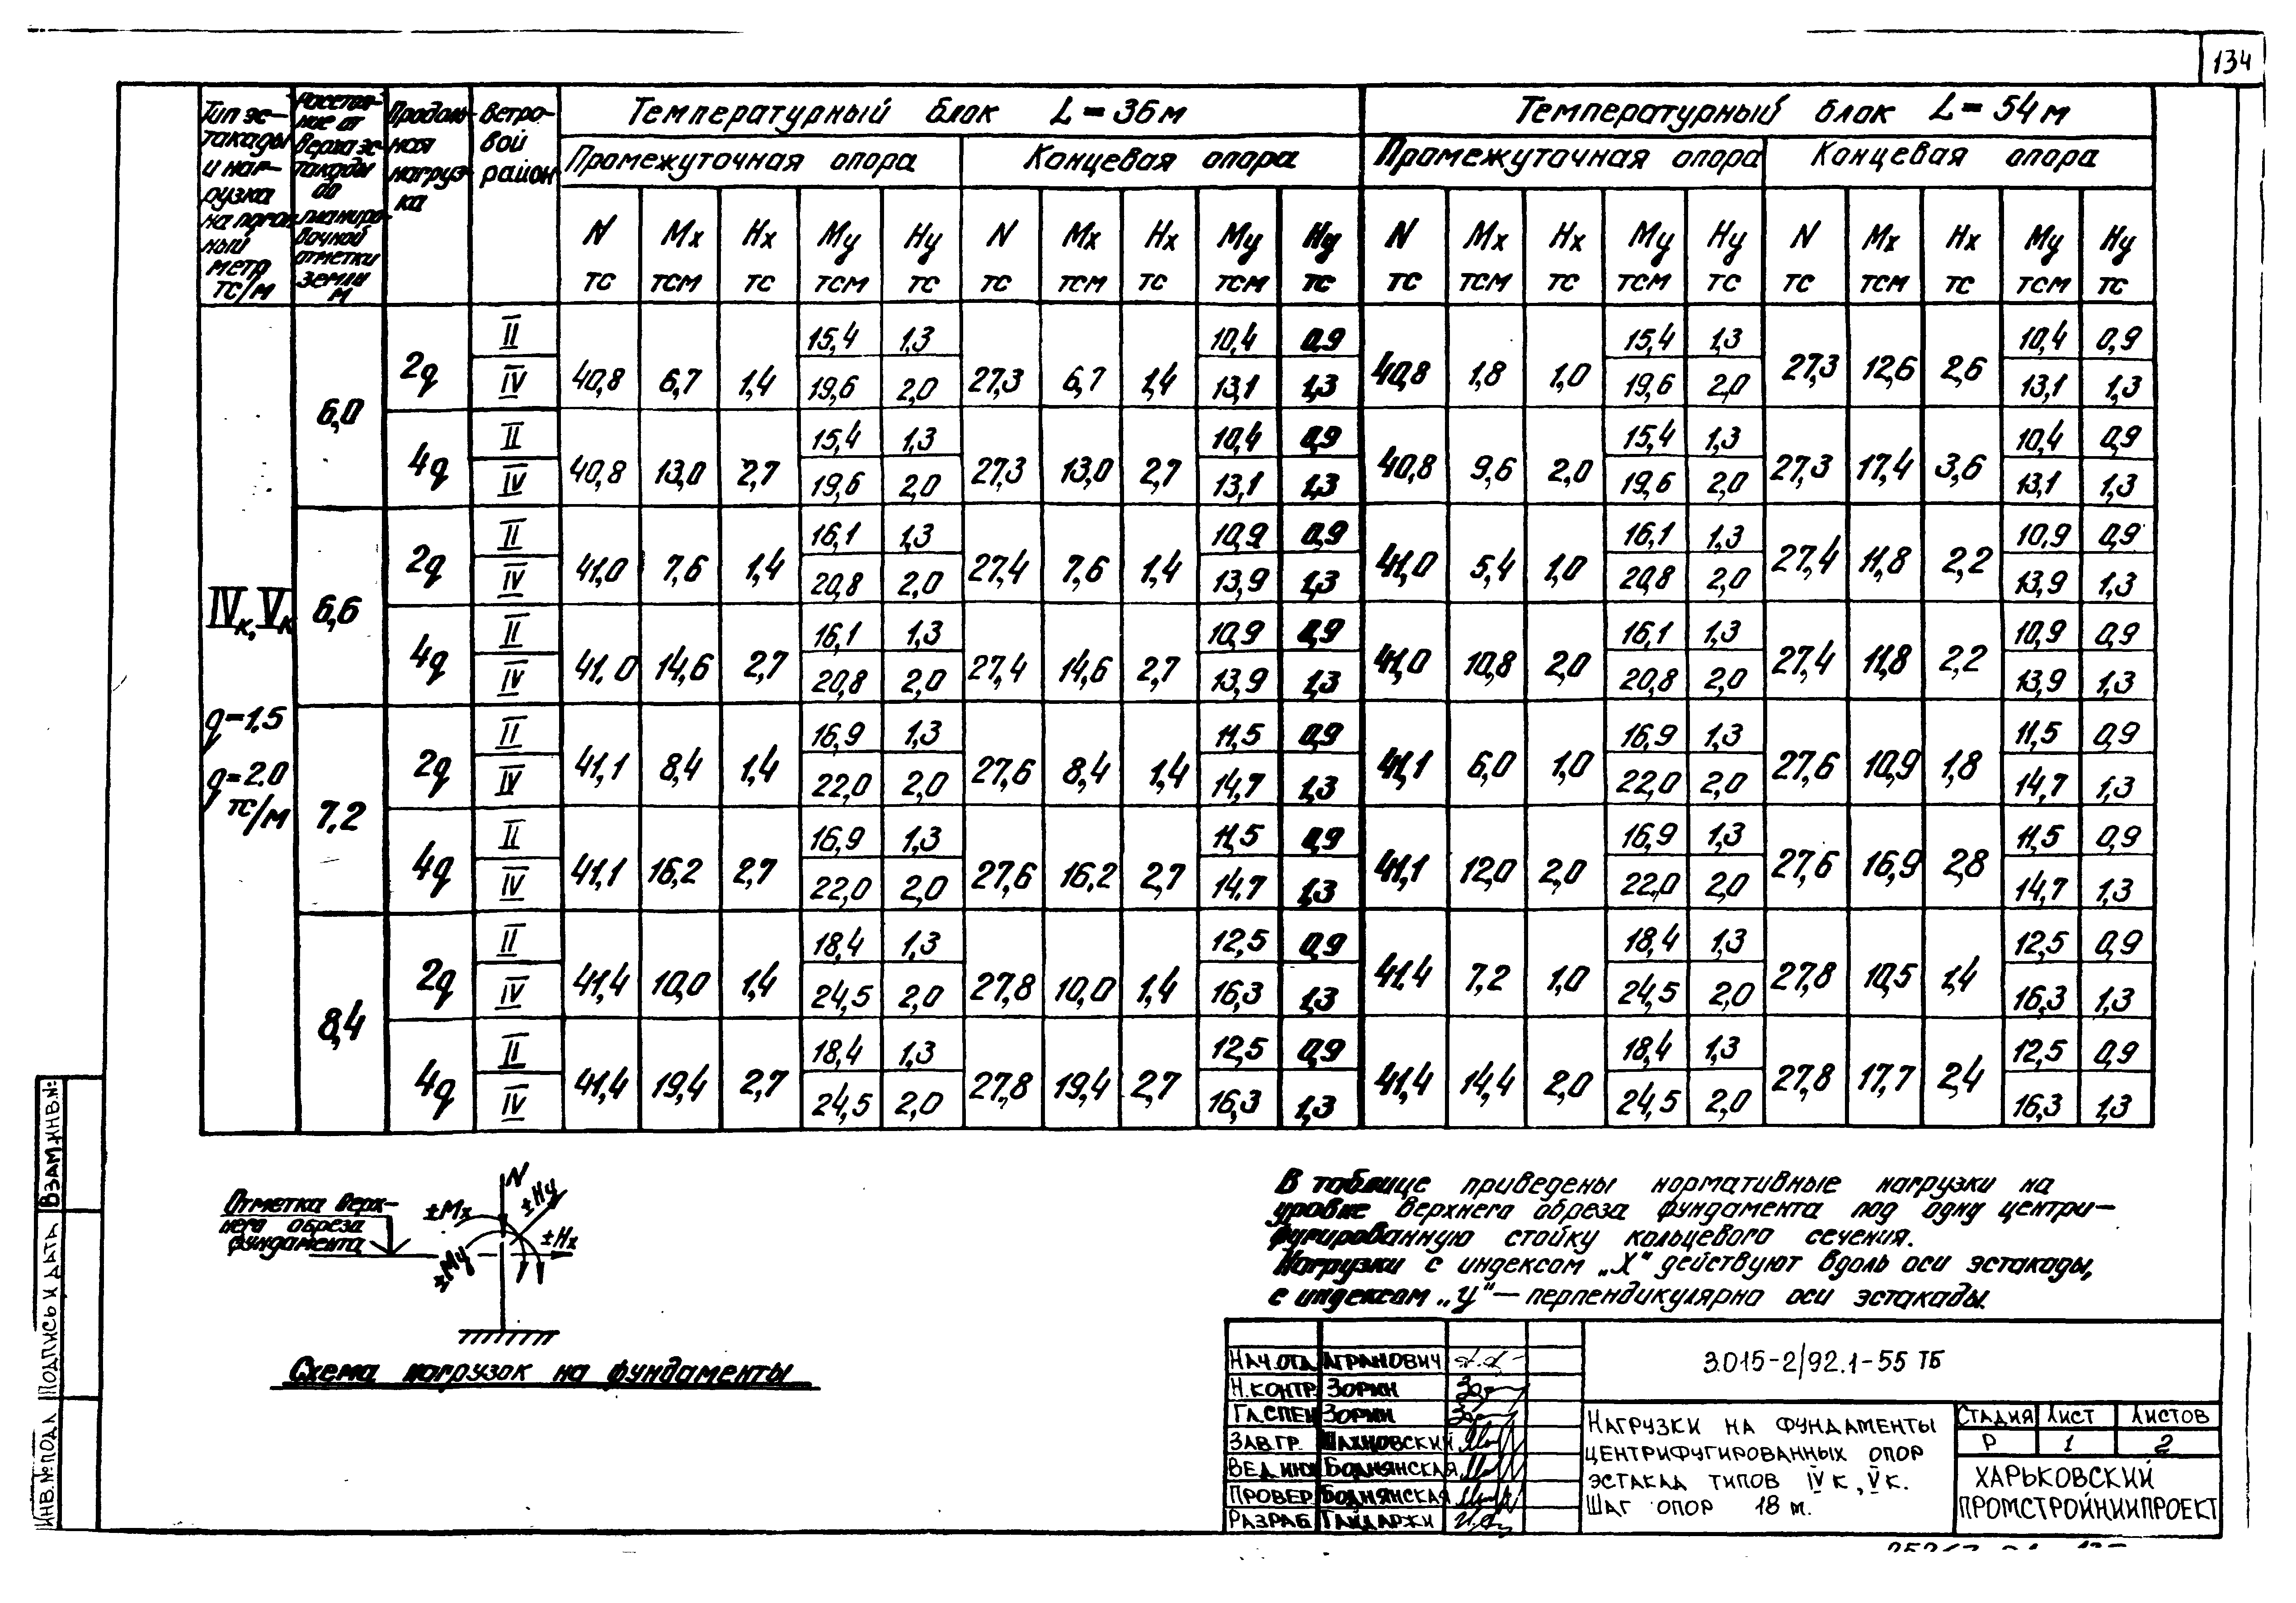 134
Тип эс-
такады
и наг-
рузка
на погон-
ный
метр
тс/м
Расстоя-
ние от
верха эс-
такады
до
планиро-
вочной
отметки
земли
м
Продоль-
ная
нагруз-
ка
Ветро-
вой
район
Температурный блок L=36м
Температурный блок L=54м
Промежуточная опора Концевая опора Промежуточная опора Концевая опора
N Mx Hx My Hy N Mx Hx My Hy N Mx Hx My Hy N Mx Hx My Hy
тс тсм тс тсм тс тс тсм тс тсм тс тс тсм тс тсм тс тс тсм тс тсм тс
IVк, Vк
q=1.5
q=2.0
тс/м
6,0
2q
II 15,4 1,3 10,4 0,9 15,4 1,3 10,4 0,9
40,8 6,7 1,4 27,3 6,7 1,4 40,8 1,8 1,0 27,3 12,6 2,6
IV 19,6 2,0 13,1 1,3 19,6 2,0 13,1 1,3
4q
II 15,4 1,3 10,4 0,9 15,4 1,3 10,4 0,9
40,8 13,0 2,7 27,3 13,0 2,7 40,8 9,6 2,0 27,3 17,4 3,6
IV 19,6 2,0 13,1 1,3 19,6 2,0 13,1 1,3
6,6
2q
II 16,1 1,3 10,9 0,9 16,1 1,3 10,9 0,9
41,0 7,6 1,4 27,4 7,6 1,4 41,0 5,4 1,0 27,4 11,8 2,2
IV 20,8 2,0 13,9 1,3 20,8 2,0 13,9 1,3
4q
II 16,1 1,3 10,9 0,9 16,1 1,3 10,9 0,9
41,0 14,6 2,7 27,4 14,6 2,7 41,0 10,8 2,0 27,4 11,8 2,2
IV 20,8 2,0 13,9 1,3 20,8 2,0 13,9 1,3
7,2
2q
II 16,9 1,3 11,5 0,9 16,9 1,3 11,5 0,9
41,1 8,4 1,4 27,6 8,4 1,4 41,1 6,0 1,0 27,6 10,9 1,8
IV 22,0 2,0 14,7 1,3 22,0 2,0 14,7 1,3
4q
II 16,9 1,3 11,5 0,9 16,9 1,3 11,5 0,9
41,1 16,2 2,7 27,6 16,2 2,7 41,1 12,0 2,0 27,6 16,9 2,8
IV 22,0 2,0 14,7 1,3 22,0 2,0 14,7 1,3
8,4
2q
II 18,4 1,3 12,5 0,9 18,4 1,3 12,5 0,9
41,4 10,0 1,4 27,8 10,0 1,4 41,4 7,2 1,0 27,8 10,5 1,4
IV 24,5 2,0 16,3 1,3 24,5 2,0 16,3 1,3
4q
II 18,4 1,3 12,5 0,9 18,4 1,3 12,5 0,9
41,4 19,4 2,7 27,8 19,4 2,7 41,4 14,4 2,0 27,8 17,7 2,4
IV 24,5 2,0 16,3 1,3 24,5 2,0 16,3 1,3
Отметка верх-
него обреза
фундамента
N
±Mx
±Hy
±Hx
±My
Схема нагрузок на фундаменты
В таблице приведены нормативные нагрузки на
уровне верхнего обреза фундамента под одну центри-
фугированную стойку кольцевого сечения.
Нагрузки с индексом „X" действуют вдоль оси эстакады,
с индексом „У" — перпендикулярно оси эстакады.
НАЧ.ОТД. АГРАНОВИЧ
Н.КОНТР. ЗОРИН
ГЛ.СПЕЦ ЗОРИН
ЗАВ.ГР. ШАХНОВСКИЙ
ВЕД.ИНЖ БОДНЯНСКАЯ
ПРОВЕР. БОДНЯНСКАЯ
РАЗРАБ. ГАЙДАРЖИ
3.015-2/92.1-55 ТБ
НАГРУЗКИ НА ФУНДАМЕНТЫ
ЦЕНТРИФУГИРОВАННЫХ ОПОР
ЭСТАКАД ТИПОВ IVк, Vк.
ШАГ ОПОР 18 м.
СТАДИЯ ЛИСТ ЛИСТОВ
Р 1 2
ХАРЬКОВСКИЙ
ПРОМСТРОЙНИИПРОЕКТ
ВЗАМ.ИНВ.№
ПОДПИСЬ И ДАТА
ИНВ.№ ПОДЛ